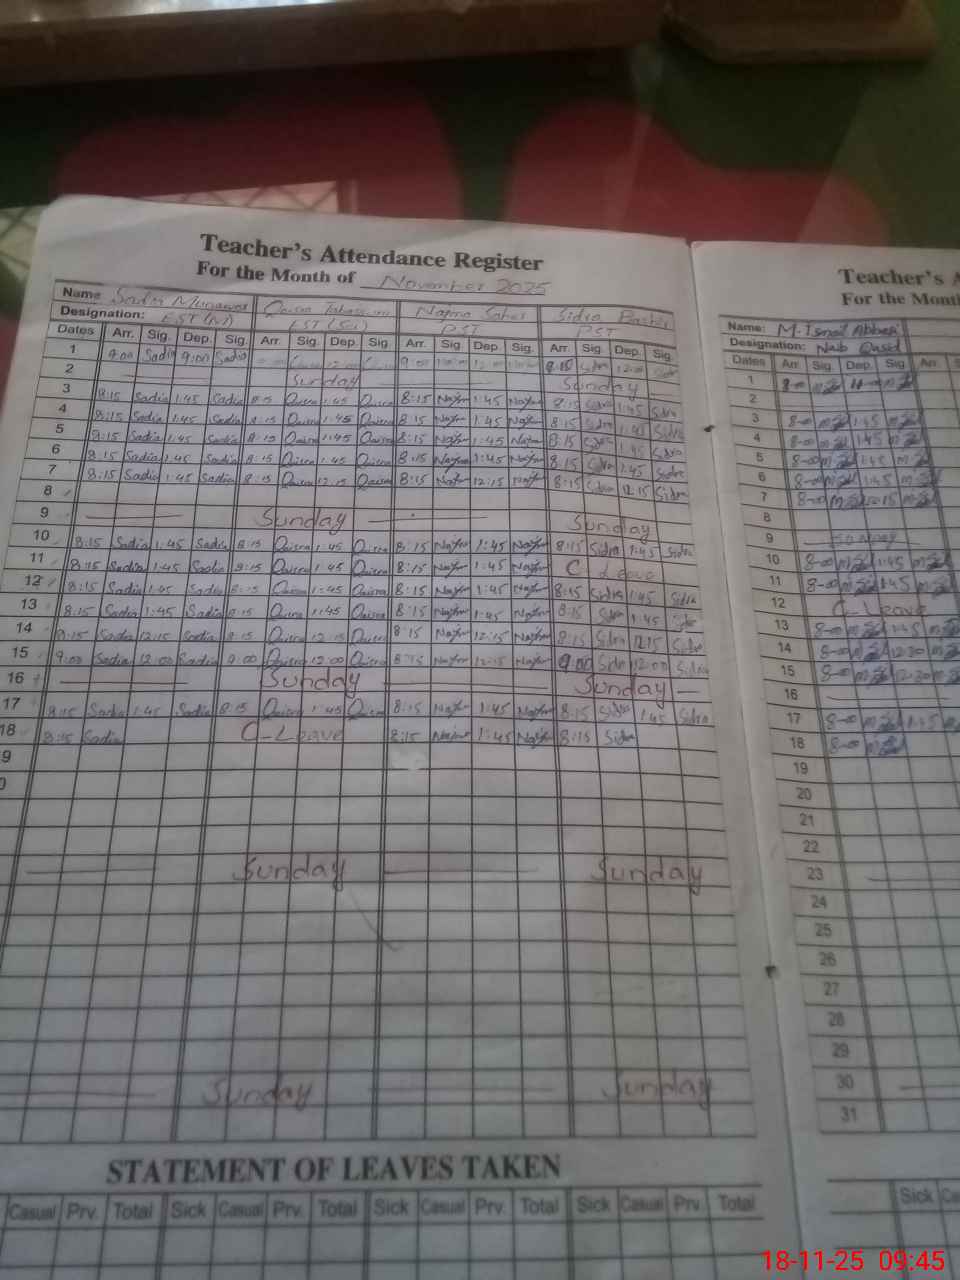 Teacher's Attendance Register
For the Month of November 2025
Name Sadia Munawar Qaisra Tabassum Najma Saher Sidra Bashir
Designation: EST (M) EST (Sci) PST PST
Dates Arr. Sig. Dep. Sig. Arr. Sig. Dep. Sig. Arr. Sig Dep. Sig. Arr. Sig. Dep. Sig.
1 9:00 Sadia 9:00 Sadia 9:00 12:00 8:15 Sidra 12:00 Sidra
2 Sunday Sunday
3 8:15 Sadia 1:45 Sadia 8:15 Qaisra 1:45 Qaisra 8:15 Najma 1:45 Najma 8:15 Sidra 1:45 Sidra
4 8:15 Sadia 1:45 Sadia 8:15 Qaisra 1:45 Qaisra 8:15 Najma 1:45 Najma 8:15 Sidra 1:45 Sidra
5 8:15 Sadia 1:45 Sadia 8:15 Qaisra 1:45 Qaisra 8:15 Najma 1:45 Najma 8:15 Sidra 1:45 Sidra
6 8:15 Sadia 1:45 Sadia 8:15 Qaisra 1:45 Qaisra 8:15 Najma 1:45 Najma 8:15 Sidra 1:45 Sidra
7 8:15 Sadia 1:45 Sadia 8:15 Qaisra 12:15 Qaisra 8:15 Najma 12:15 Najma 8:15 Sidra 12:15 Sidra
8
9 Sunday Sunday
10 8:15 Sadia 1:45 Sadia 8:15 Qaisra 1:45 Qaisra 8:15 Najma 1:45 Najma 8:15 Sidra 1:45 Sidra
11 8:15 Sadia 1:45 Sadia 8:15 Qaisra 1:45 Qaisra 8:15 Najma 1:45 Najma C-Leave
12 8:15 Sadia 1:45 Sadia 8:15 Qaisra 1:45 Qaisra 8:15 Najma 1:45 Najma 8:15 Sidra 1:45 Sidra
13 8:15 Sadia 1:45 Sadia 8:15 Qaisra 1:45 Qaisra 8:15 Najma 1:45 Najma 8:15 Sidra 1:45 Sidra
14 8:15 Sadia 12:15 Sadia 8:15 Qaisra 12:15 Qaisra 8:15 Najma 12:15 Najma 8:15 Sidra 12:15 Sidra
15 9:00 Sadia 12:00 Sadia 9:00 Qaisra 12:00 Qaisra 8:15 Najma 12:15 Najma 9:00 Sidra 12:00 Sidra
16 Sunday Sunday
17 8:15 Sadia 1:45 Sadia 8:15 Qaisra 1:45 Qaisra 8:15 Najma 1:45 Najma 8:15 Sidra 1:45 Sidra
18 8:15 Sadia C-Leave 8:15 Najma 1:45 Najma 8:15 Sidra
9
0
Sunday Sunday
Sunday Sunday
STATEMENT OF LEAVES TAKEN
Casual Prv. Total Sick Casual Prv. Total Sick Casual Prv. Total Sick Casual Prv. Total
Teacher's A
For the Month
Name: M. Ismail Abbasi
Designation: Naib Qasid
Dates Arr Sig. Dep. Sig Arr. S
1 8-00
2
3 8-00 1:45
4 8-00 1:45
5 8-00 1:45
6 8-00 1:45
7 8-00
8
9 Sunday
10 8-00 1:45
11 8-00 1:45
12 C-Leave
13 8-00 1:45
14 8-00 12:30
15 8-00 12:30
16
17 8-00 1:45
18 8-00
19
20
21
22
23
24
25
26
27
28
29
30
31
Sick Ca
18-11-25 09:45